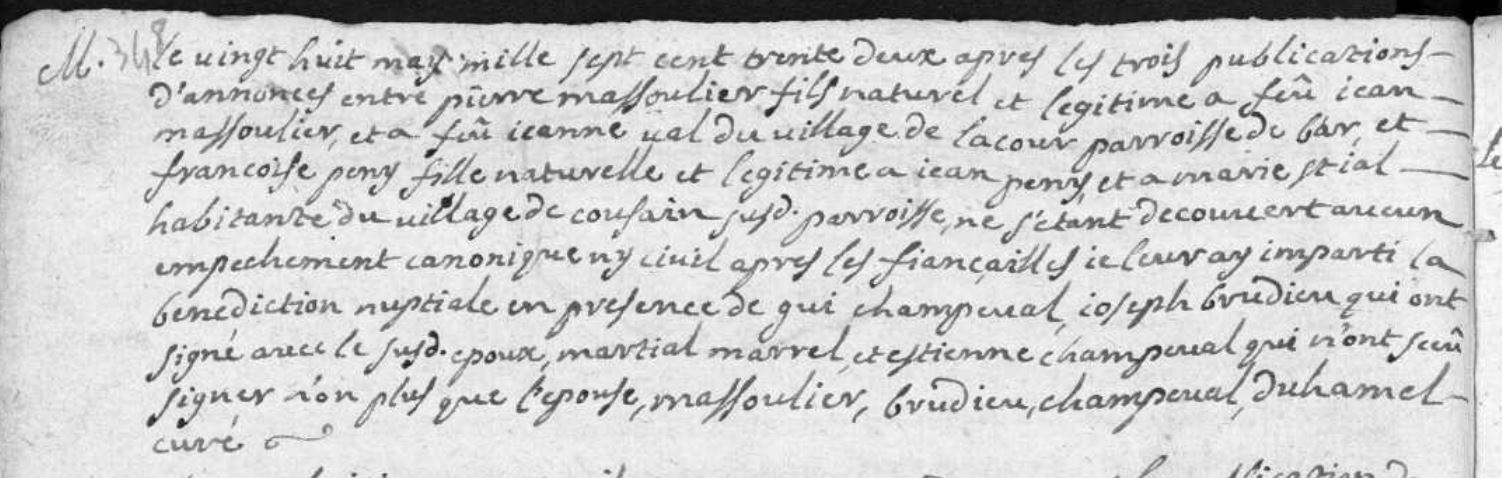 M. 348 le vingt huit may mille sept cent trente deux apres les trois publications
d'annonces entre pierre massoulier fils naturel et legitime a feû iean
massoulier, et a feû ieanne val du village de lacour parroisse de bar, et
francoise peny fille naturelle et legitime a iean peny, et a marie stial
habitante du village de cousain susd. parroisse, ne s'etant decouvert aucun
empechement canonique ny civil apres les fiançailles ie leur ay imparti la
benediction nuptiale en presence de gui champeval, ioseph brudieu qui ont
signé avec le susd. epoux, martial marrel, et estienne champeval qui n'ont sceû
signer non plus que l'epouse, massoulier, brudieu, champeval, duhamel
curé